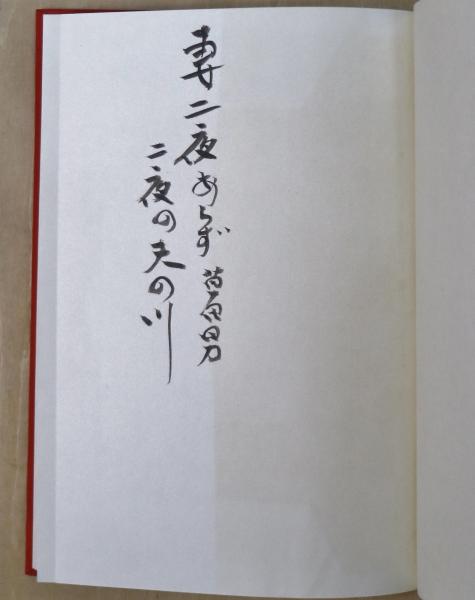 妻二夜あらず
二夜の天の川
草田男